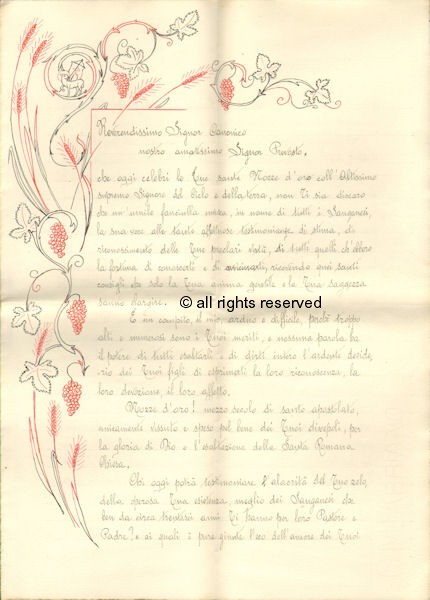 Reverendissimo Signor Canonico
nostro amatissimo Signor Prevosto,
che oggi celebri le Tue sante Nozze d'oro coll'Altissimo
supremo Signore del Cielo e della terra, non Ti sia discaro
che un'umile fanciulla unisca, in nome di tutti i Sanganesi,
la sua voce alle tante affettuose testimonianze di stima, di
riconoscimento delle Tue preclari virtù, di tutti quelli ch'ebbero
la fortuna di conoscerti e di avvicinarti, ricevendo quei santi
consigli che solo la Tua anima gentile e la Tua saggezza
sanno elargire.
© all rights reserved
È un compito, il mio, arduo e difficile, perchè troppo
alti e numerosi sono i Tuoi meriti, e nessuna parola ha
il potere di tutti esaltarli e di dirti intero l'ardente deside-
rio dei Tuoi figli di esprimerti la loro riconoscenza, la
loro devozione, il loro affetto.
Nozze d'oro! mezzo secolo di santo apostolato,
unicamente vissuto e speso pel bene dei Tuoi discepoli, per
la gloria di Dio e l'esaltazione della Santa Romana
Chiesa.
Chi oggi potrà testimoniare l'alacrità del Tuo zelo,
della operosa Tua esistenza, meglio dei Sanganesi che
ben da circa trent'anni Ti hanno per loro Pastore e
Padre? e ai quali è pure giunta l'eco dell'amore dei Tuoi